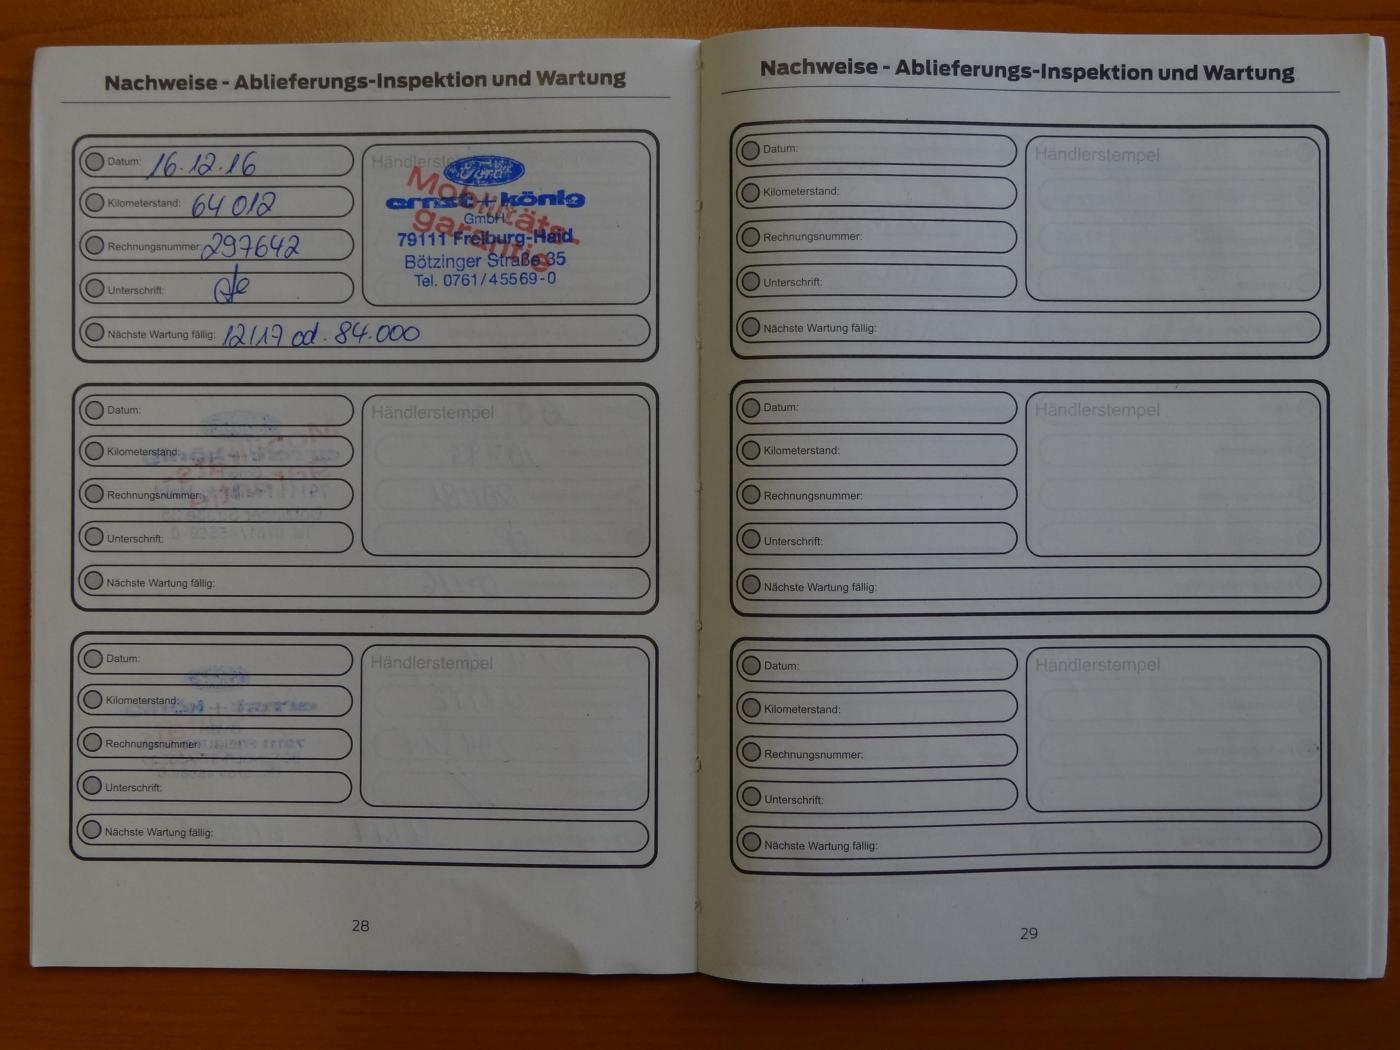 Nachweise - Ablieferungs-Inspektion und Wartung
Datum: 16.12.16
Kilometerstand: 64 012
Rechnungsnummer: 297642
Unterschrift:
Nächste Wartung fällig: 12/17 od. 84.000
Händlerstempel
Ford
ernst+könig
GmbH
79111 Freiburg-Haid
Bötzinger Straße 35
Tel. 0761/45569-0
Mobilitäts-
garantie
Datum:
Kilometerstand:
Rechnungsnummer:
Unterschrift:
Nächste Wartung fällig:
Händlerstempel
Datum:
Kilometerstand:
Rechnungsnummer:
Unterschrift:
Nächste Wartung fällig:
Händlerstempel
28
Nachweise - Ablieferungs-Inspektion und Wartung
Datum:
Kilometerstand:
Rechnungsnummer:
Unterschrift:
Nächste Wartung fällig:
Händlerstempel
Datum:
Kilometerstand:
Rechnungsnummer:
Unterschrift:
Nächste Wartung fällig:
Händlerstempel
Datum:
Kilometerstand:
Rechnungsnummer:
Unterschrift:
Nächste Wartung fällig:
Händlerstempel
29